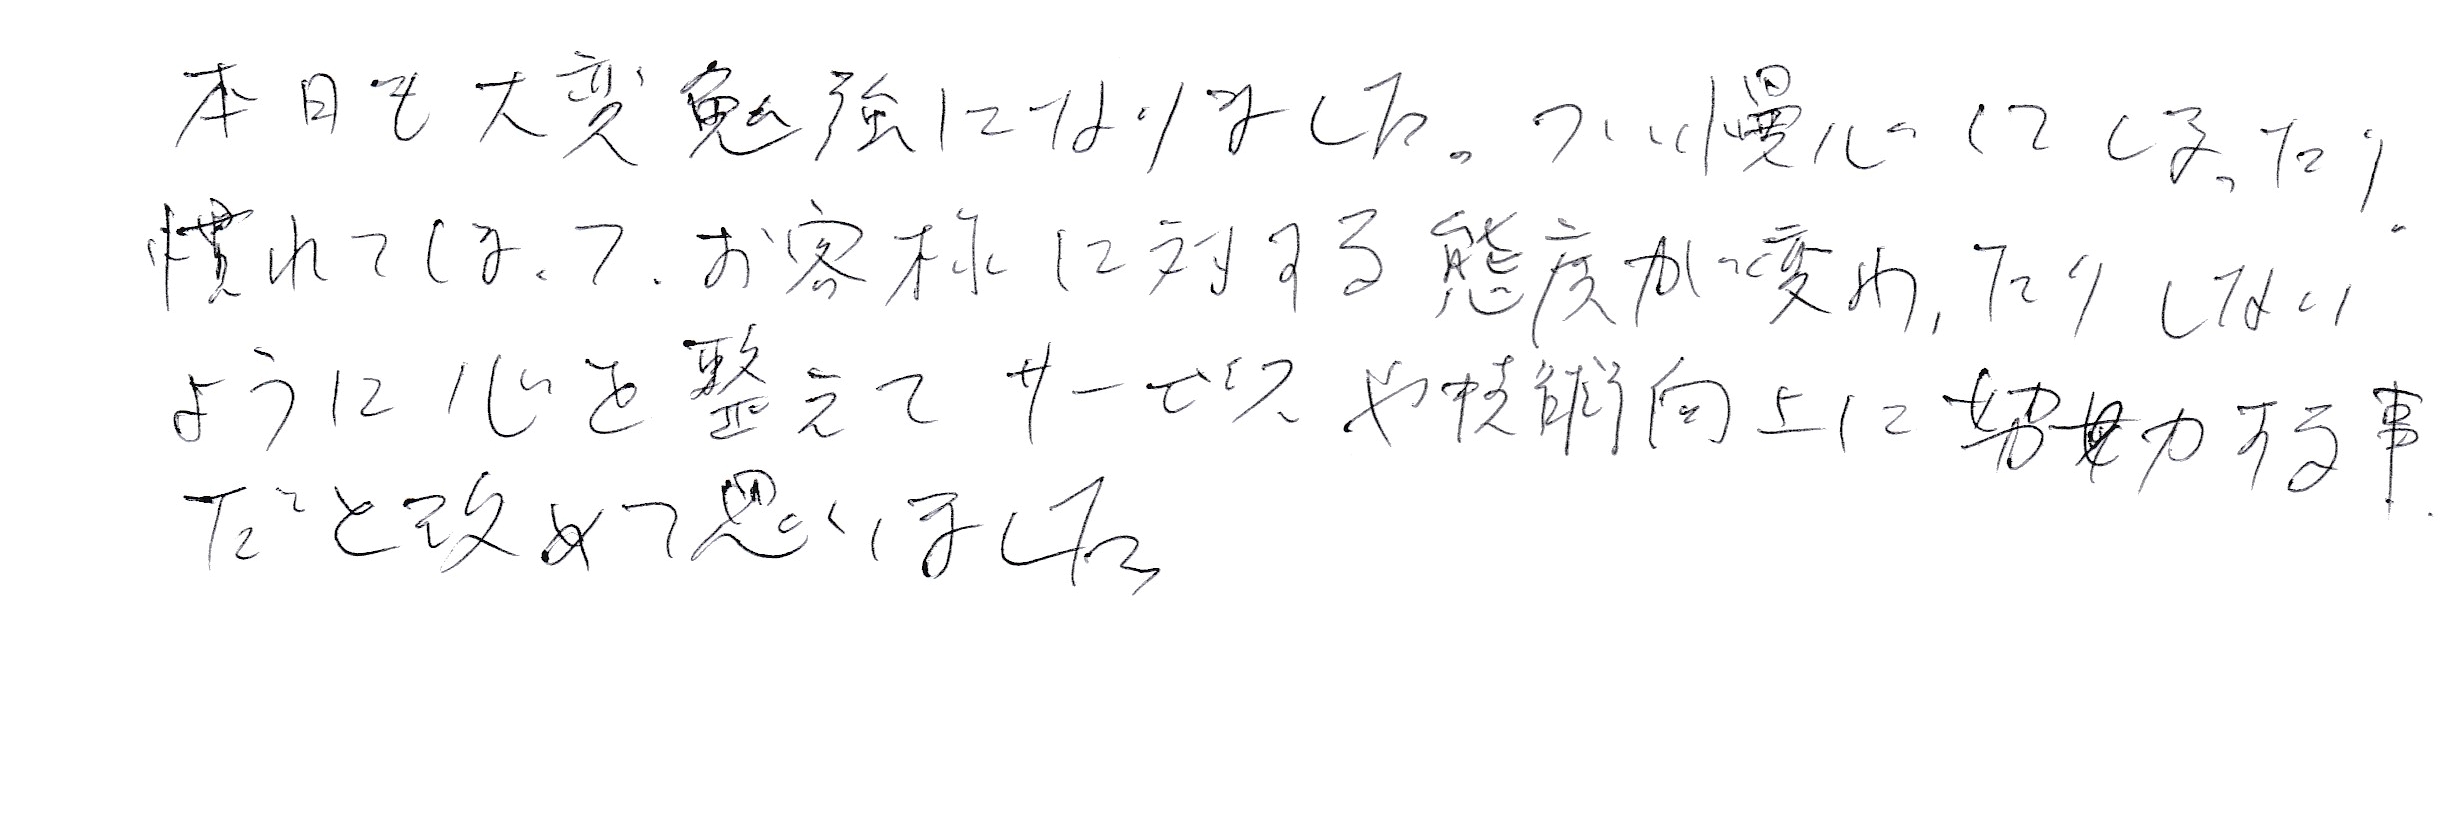 本日も大変勉強になりました。つい慢心してしまったり、
慣れてしまって、お客様に対する態度が変わったりしない
ように心を整えてサービスや技術向上に努力する事
だと改めて思いました。